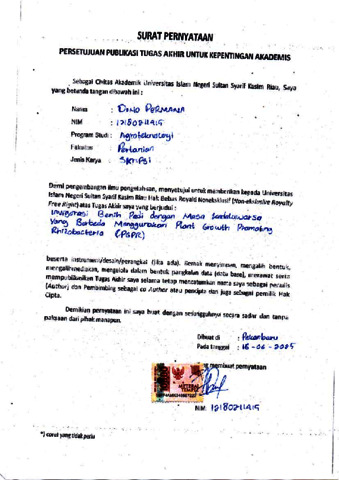 SURAT PERNYATAAN
PERSETUJUAN PUBLIKASI TUGAS AKHIR UNTUK KEPENTINGAN AKADEMIS
Sebagai Civitas Akademik Universitas Islam Negeri Sultan Syarif Kasim Riau, Saya
yang bertanda tangan dibawah ini :
Nama : DINO PERMANA
NIM : 12180211415
Program Studi : Agroteknologi
Fakultas : Pertanian
Jenis Karya : SKRIPSI
Demi pengembangan ilmu pengetahuan, menyetujui untuk memberikan kepada Universitas
Islam Negeri Sultan Syarif Kasim Riau Hak Bebas Royalti Noneksklusif (Non-eksklusive Royalty
Free Right) atas Tugas Akhir saya yang berjudul :
Invigorasi Benih Padi dengan Masa kadaluwarsa
Yang Berbeda Menggunakan Plant Growth Promoting
Rhizobacteria (PGPR)
beserta instrumen/desain/perangkat (jika ada). Berhak menyimpan, mengalih bentuk,
mengalihmediakan, mengelola dalam bentuk pangkalan data (data base), merawat serta
mempublikasikan Tugas Akhir saya selama tetap mencantumkan nama saya sebagai penulis
(Author) dan Pembimbing sebagai co Author atau pencipta dan juga sebagai pemilik Hak
Cipta.
Demikian pernyataan ini saya buat dengan sesungguhnya secara sadar dan tanpa
paksaan dari pihak manapun.
Dibuat di : Pekanbaru
Pada tanggal : 16-06-2025
membuat pernyataan
METERAI
TEMPEL
NIM: 12180211415
*) coret yang tidak perlu